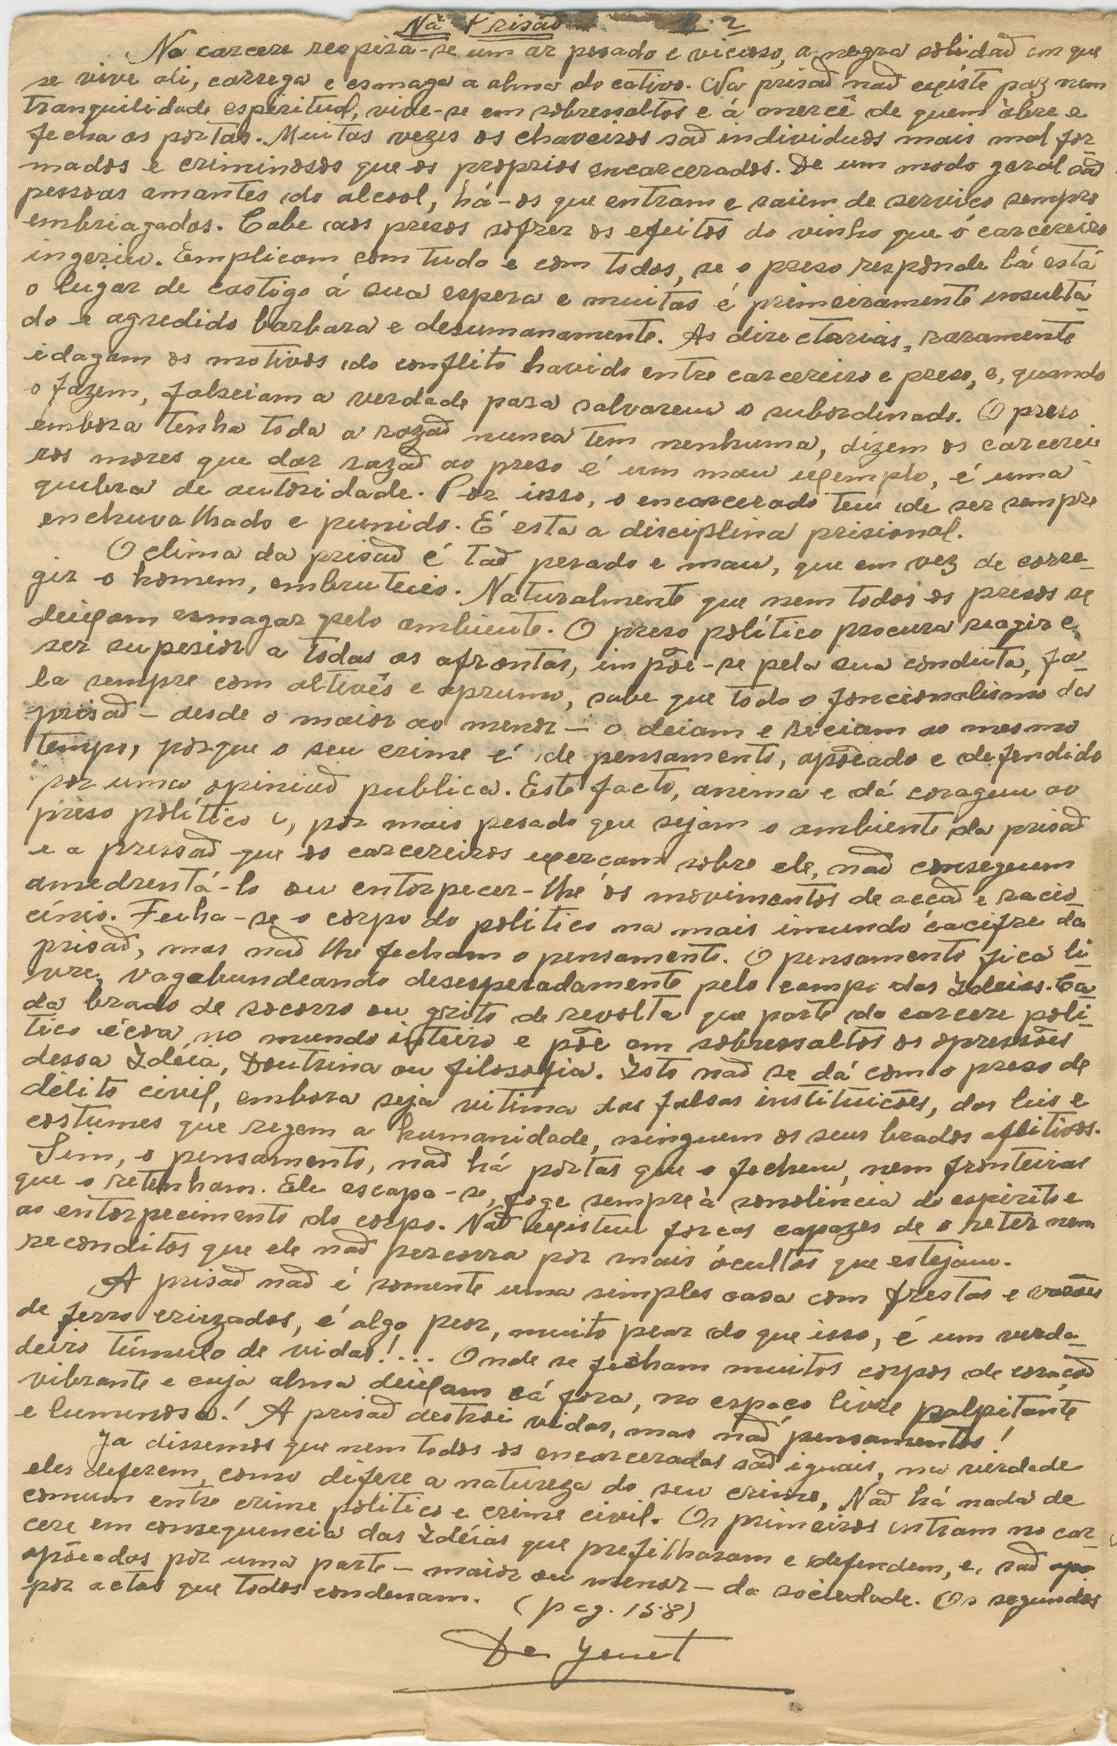 Na Prisão nº 2
No carcere respira-se um ar pesado e vicioso, a negra solidaõ em que
se vive ali, carrega e esmaga a alma do cativo. Na prisaõ naõ existe paz nem
tranquilidade espiritual, vive-se em sobressaltos e á mercê de quem abre e
fecha as portas. Muitas vezes os chaveiros saõ individuos mais mal for-
mados e criminosos que os proprios encarcerados. De um modo geral saõ
pessoas amantes do alcool, há-os que entram e saiem de serviço sempre
embriagados. Cabe aos presos sofrer os efeitos do vinho que o carcereiro
ingeriu. Emplicam com tudo e com todos, se o preso responde lá está
o lugar de castigo á sua espera e muitas é primeiramente insulta-
do e agredido barbara e desumanamente. As directorias, raramente
idagam os motivos do conflito havido entre carcereiro e preso, e, quando
o fazem, falseiam a verdade para salvarem o subordinado. O preso
embora tenha toda a razaõ nunca tem nenhuma, dizem os carcerei
ros mores que dar razaõ ao preso é um mau exemplo, é uma
quebra de autoridade. Por isso, o encarcerado tem de ser sempre
enchuvalhado e punido. É esta a disciplina prisional.
O clima da prisaõ é taõ pesado e mau, que em vez de corre-
gir o homem, embrutece-o. Naturalmente que nem todos os presos se
deixam esmagar pelo ambiente. O preso político procura reagir e
ser superior a todas as afrontas, impõe-se pela sua conduta, fa-
la sempre com altivês e aprumo, sabe que todo o foncionalismo da
prisaõ - desde o maior ao menor - o deiam e reciam ao mesmo
tempo, porque o seu crime é de pensamento, apoiado e defendido
por uma opiniaõ publica. Este facto, anima e dá coragem ao
preso político e, por mais pesado que sejam o ambiente da prisaõ
e a pressaõ que os carcereiros exerçam sobre ele, naõ conseguem
amedrentá-lo ou entorpecer-lhe os movimentos de acçaõ e racio
cínio. Fecha-se o corpo do político na mais imundo cacifre da
prisaõ, mas naõ lhe fecham o pensamento. O pensamento fica li-
vre, vagabundeando desesperadamente pelo campo das Ideias. Ca-
da brado de socorro ou grito de revolta que parte do carcere poli-
tico écoa no mundo inteiro e põe em sobressaltos os opressões
dessa Idéia, Doutrina ou filosofia. Isto naõ se dá com o preso de
delito civil, embora seja vitima das falsas instituições, das leis e
costumes que regem a humanidade, ninguem os seus brados aflitivos.
Sim, o pensamento, naõ há portas que o fechem, nem fronteiras
que o retenham. Ele escapa-se, foge sempre à sonolência do espirito e
ao entorpecimento do corpo. Naõ existem forças capazes de o reter nem
reconditos que ele naõ percorra por mais ócultos que estejam.
A prisaõ naõ é somente uma simples casa com frestas e varões
de ferro cruzados, é algo peor, muito pear do que isso, é um verda-
deiro túmulo de vidas!... Onde se fecham muitos corpos de coraçaõ
vibrante e cuja alma deixam cá fora, no espaço livre palpitante
e luminoso! A prisaõ destroi vidas, mas naõ pensamentos!
Ja dissemos que nem todos os encarcerados saõ iguais, na verdade
eles diferem, como difere a natureza do seu crime, Naõ há nada de
comum entre crime politico e crime civil. Os primeiros entram no car-
cere em consequencia das Idéias que prefilharam e defendem, e, saõ apo
apõeados por uma parte - maior ou menor - da sociedade. Os segundos
por actos que todos condenam. (pag. 158)
De Jenet